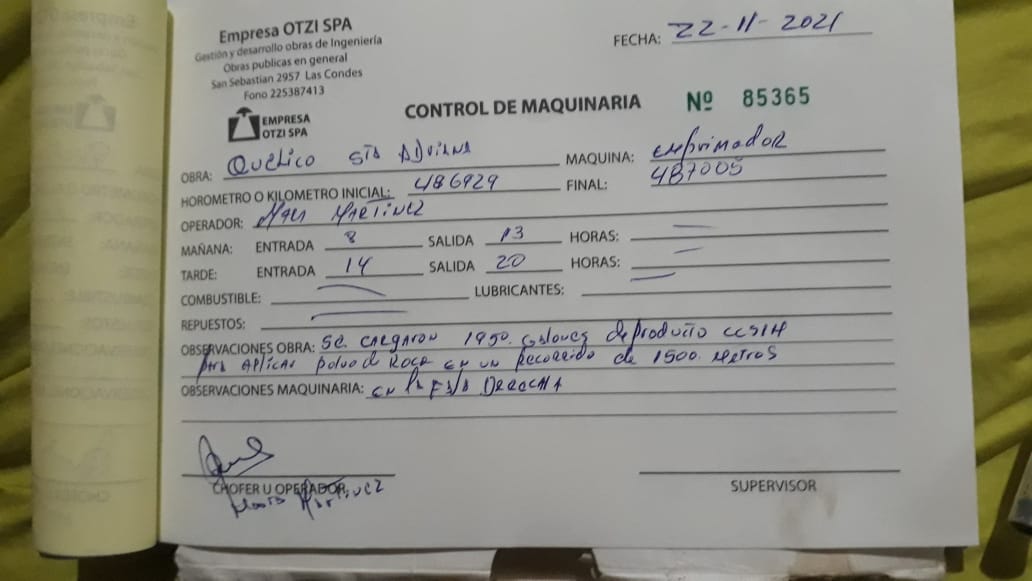 Empresa OTZI SPA
Gestión y desarrollo obras de Ingeniería
Obras publicas en general
San Sebastian 2957 Las Condes
Fono 225387413
FECHA: 22-11-2021
EMPRESA
OTZI SPA
CONTROL DE MAQUINARIA Nº 85365
OBRA: Quelico Sta Adriana MAQUINA: emprimador
HOROMETRO O KILOMETRO INICIAL: 486929 FINAL: 487005
OPERADOR: Martinez
MAÑANA: ENTRADA 8 SALIDA 13 HORAS: —
TARDE: ENTRADA 14 SALIDA 20 HORAS: —
COMBUSTIBLE: — LUBRICANTES: —
REPUESTOS: —
OBSERVACIONES OBRA: Se cargaron 1950. Galones de produto CCS1H
para aplicar polvo de Roca en un recorrido de 1500. metros
OBSERVACIONES MAQUINARIA: en la Derecha
CHOFER U OPERADOR
Martinez
SUPERVISOR